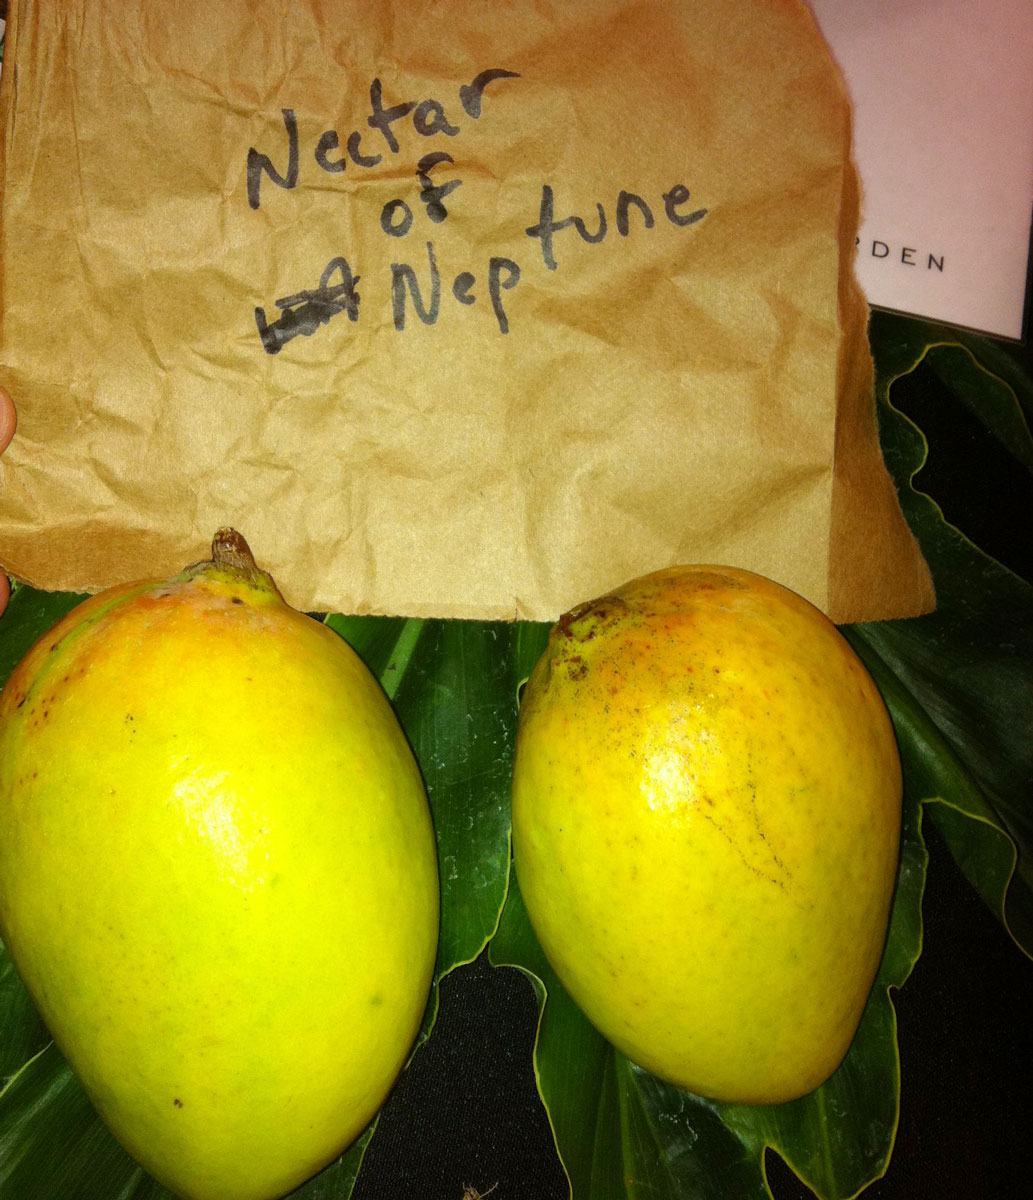 Nectar
of
Neptune
RDEN